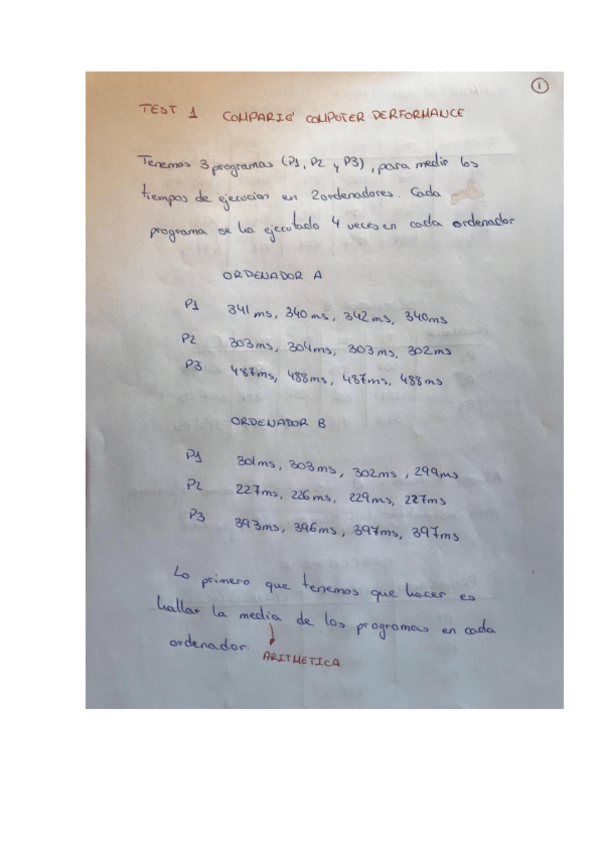 1
TEST 1 COMPARIG COMPUTER PERFORMANCE
Tenemos 3 programas (P1, P2 y P3), para medir los
tiempos de ejecucion en 2 ordenadores. Cada
programa se ha ejecutado 4 veces en cada ordenador
ORDENADOR A
P1 341 ms, 340 ms, 342 ms, 340ms
P2 303 ms, 304ms, 303 ms, 302 ms
P3 487ms, 488 ms, 487ms, 488 ms
ORDENADOR B
P1 301ms, 303 ms, 302 ms, 299ms
P2 227 ms, 226 ms, 229 ms, 227ms
P3 393ms, 396 ms, 397 ms, 397 ms
Lo primero que tenemos que hacer es
hallar la media de los programas en cada
ordenador.
ARITMETICA